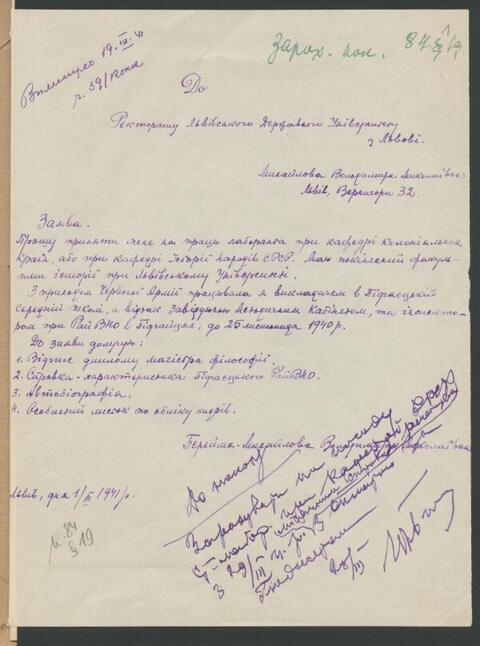 Вплинуло 19.III.41
ч. 39/конк
Зарах. нак. 84 § 19
До
Ректорату Львівського Державного Університету
з Львові.
Михайлова Володимира Миколаївна
Львів, Вернигори 32.
Заява.
Прошу приняти мене на працю лаборанта при кафедрі колоніальних
країн, або при кафедрі історії народів СРСР. Маю покінчений факуль-
тет історії при Львівському Університеті.
З приходом Червоної Армії працювала я викладачем в Підгаєцькій
середній школі, а відтак Завідуючою Методичним Кабінетом, та інспекто-
ром при РайВНО в Підгайцях, до 25 листопада 1940 р.
До заяви долучую:
1. Відпис диплому магістра філософії.
2. Справка-характеристика Підгаєцького РайВНО.
3. Автобіографія.
4. Особистий листок по обліку кадрів.
Михайлова
Львів, дня 1/III 1941 р.
н. 84
§ 19
До наказу
Зарахувати на посаду
ст. лабор. при кафедрі
з 29/III 41 р.
28/III